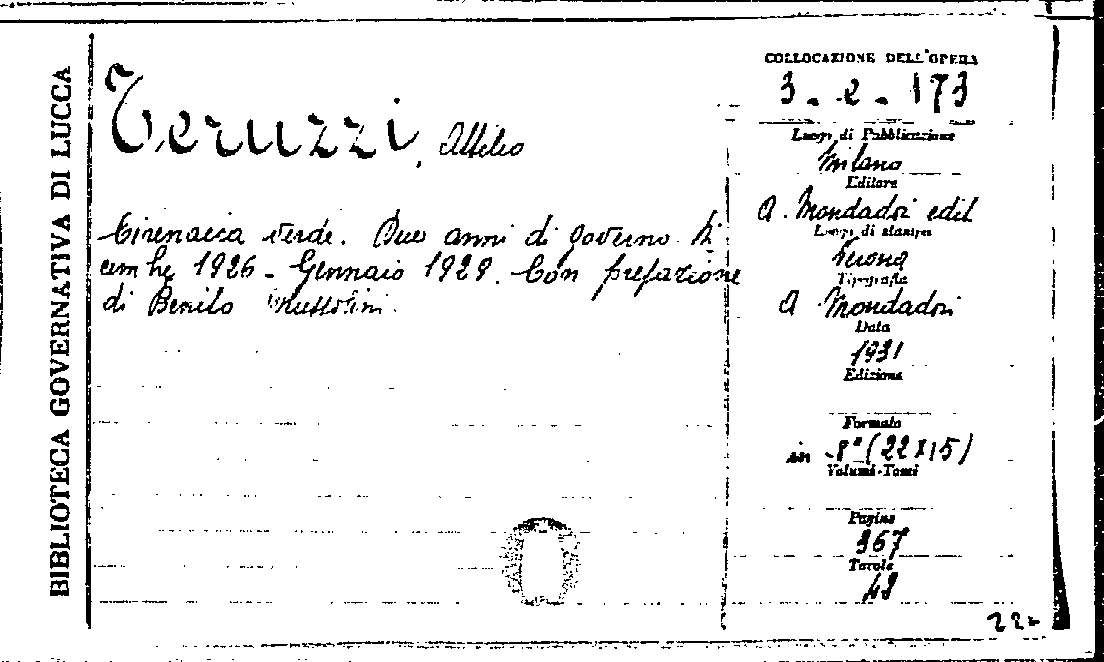 BIBLIOTECA GOVERNATIVA DI LUCCA
Teruzzi, Attilio
Cirenaica verde. Due anni di governo Di
cembre 1926 - Gennaio 1929. Con prefazione
di Benito Mussolini.
COLLOCAZIONE DELL'OPERA
3 - e - 173
Luogo di Pubblicazione
Milano
Editore
A. Mondadori edit
Luogo di stampa
Verona
Tipografia
A Mondadori
Data
1931
Edizione
Formato
in 8° (22x15)
Volumi-Tomi
Pagine
367
Tavole
48